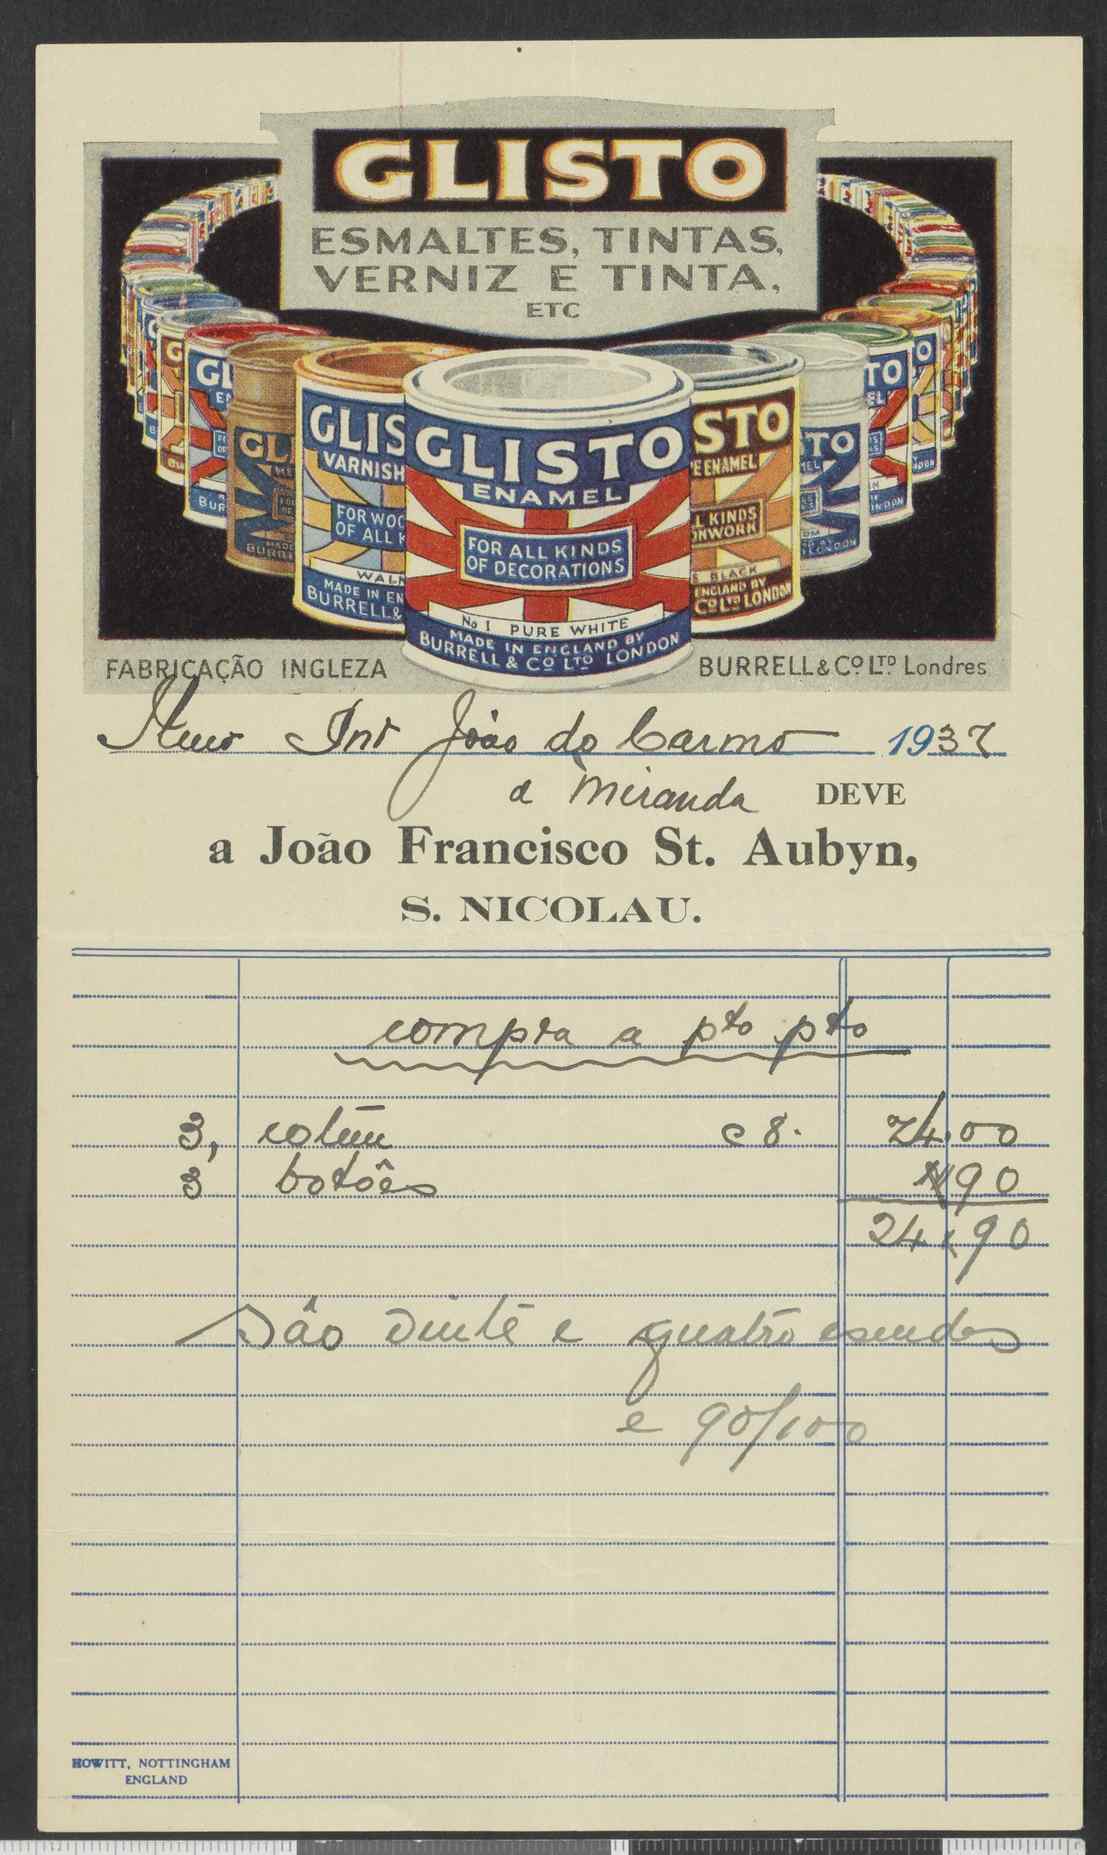 GLISTO
ESMALTES, TINTAS,
VERNIZ E TINTA,
ETC
GLISTO
ENAMEL
FOR ALL KINDS
OF DECORATIONS
No 1 PURE WHITE
MADE IN ENGLAND BY
BURRELL & Co LTD LONDON
GLIS
VARNISH
FOR WOO
OF ALL K
WALN
MADE IN EN
BURRELL &
STO
E ENAMEL
L KINDS
ONWORK
BLACK
ENGLAND BY
Co LTD LONDON
FABRICAÇÃO INGLEZA
BURRELL & Co. LTD Londres
João do Carmo 1937
a Miranda DEVE
a João Francisco St. Aubyn,
S. NICOLAU.
compra a pto pto
3, c 8. 24.00
3 botões 90
24.90
São vinte e quatro escudos
e 90/100
HOWITT, NOTTINGHAM
ENGLAND